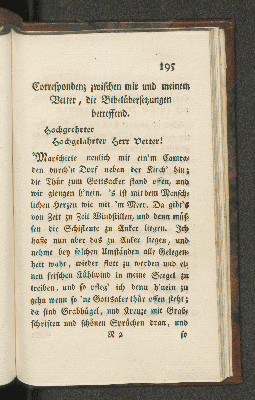 195
Correspondenz zwischen mir und meinem
Vetter, die Bibelübersetzungen
betreffend.
Hochgeehrter
Hochgelahrter Herr Vetter!
Marschirte neulich mit ein'm Camra-
den durch'n Dorf neben der Kirch' hin;
die Thür zum Gottsacker stand offen, und
wir giengen h'nein. 's ist mit dem Mensch-
lichen Herzen wie mit 'm Meer. Da gibt's
von Zeit zu Zeit Windstillen, und denn müß-
sen die Schifleute zu Anker liegen. Ich
hasse nun aber das zu Anker liegen, und
nehme bey solchen Umständen alle Gelegen-
heit wahr, wieder flott zu werden und ei-
nen frischen Kühlwind in meine Seegel zu
treiben, und so pfleg' ich denn h'nein zu
gehn wenn so 'ne Gottsaker thür offen steht;
da sind Grabhügel, und Kreuze mit Grab-
schriften und schönen Sprüchen dran, und
N 2 so